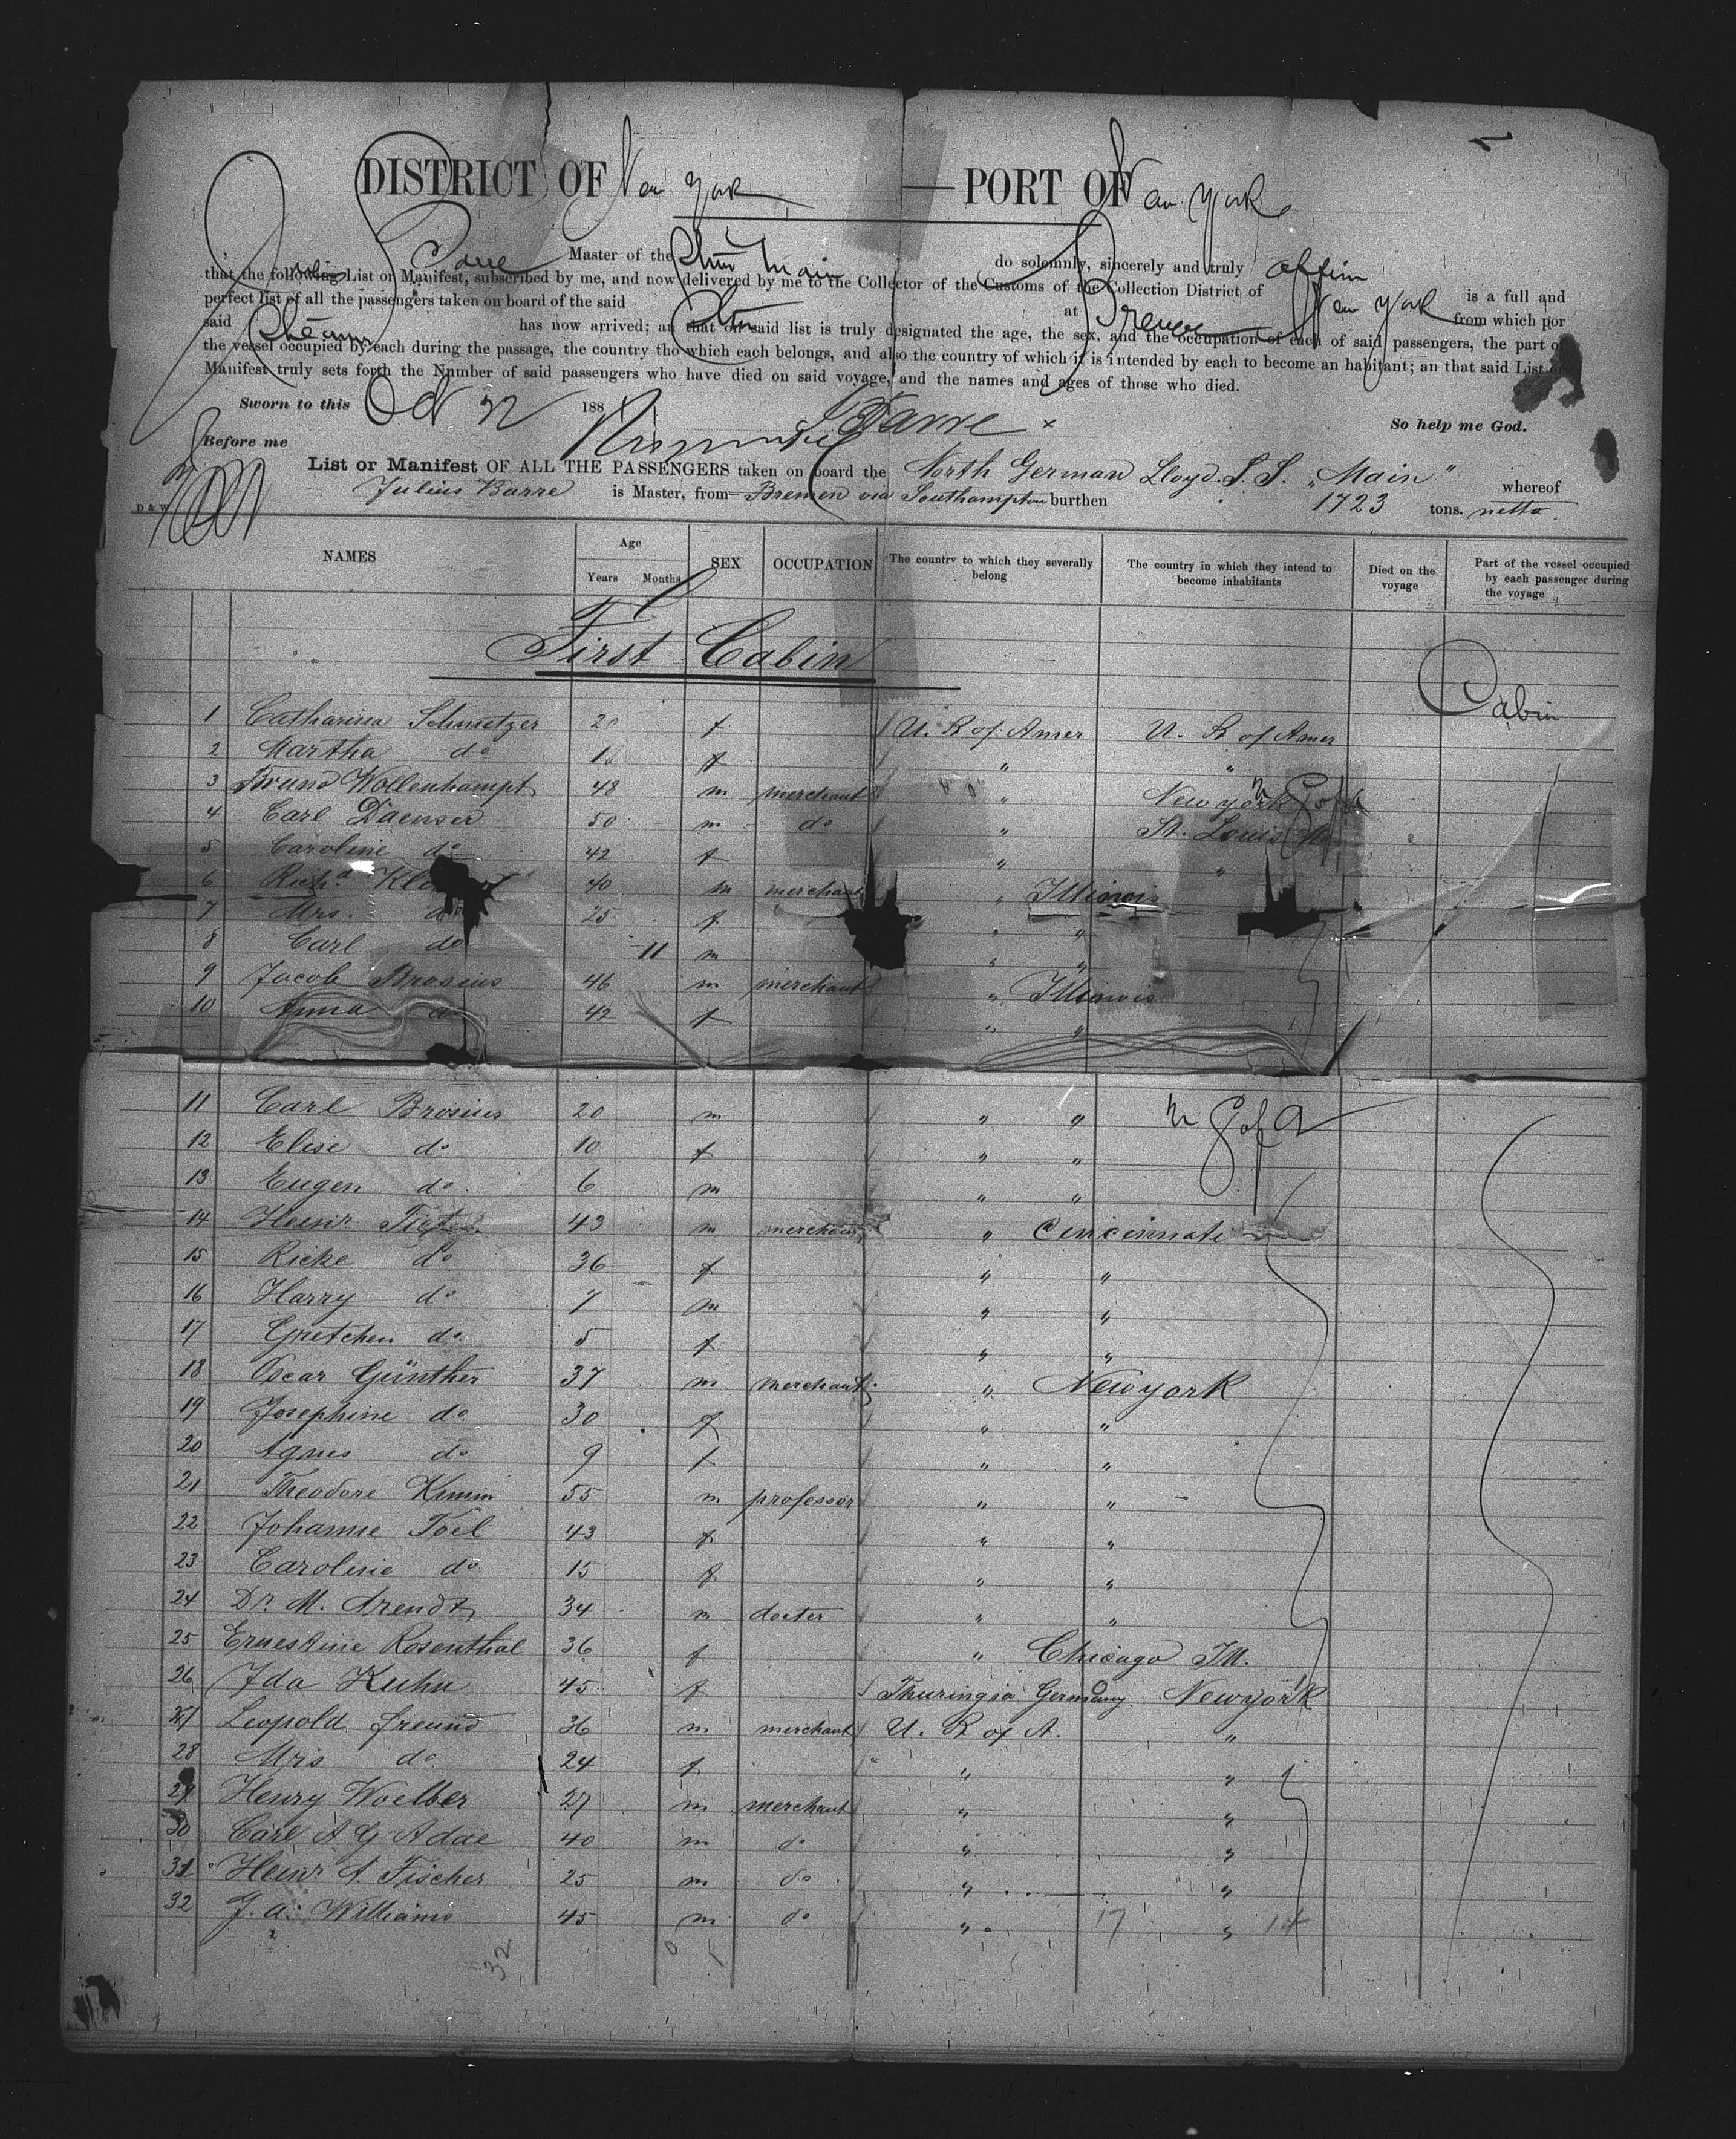 DISTRICT OF New York — PORT OF New York
Julius Barre Master of the Stmr Main do solemnly, sincerely and truly affirm
that the following List or Manifest, subscribed by me, and now delivered by me to the Collector of the Customs of the Collection District of New York is a full and
perfect list of all the passengers taken on board of the said Str at Bremen from which por
said Steamr has now arrived; an that on said list is truly designated the age, the sex, and the occupation of each of said passengers, the part of
the vessel occupied by each during the passage, the country tho which each belongs, and also the country of which it is intended by each to become an habitant; an that said List or
Manifest truly sets forth the Number of said passengers who have died on said voyage, and the names and ages of those who died.
Sworn to this Oct 22 188 JBarre × So help me God.
Before me
List or Manifest OF ALL THE PASSENGERS taken on board the North German Lloyd. S. S. „Main" whereof
Julius Barre is Master, from Bremen via Southampton burthen 1723 tons. netto
D & W
NAMES Age Years Months SEX OCCUPATION The country to which they severally belong The country in which they intend to become inhabitants Died on the voyage Part of the vessel occupied by each passenger during the voyage
First Cabin
Cabin
1 Catharina Schmetzer f U. S. of Amer U. S. of Amer
2 Martha do f " "
3 Bruno Wollenhampt 48 m merchant " New york
4 Carl Daenser 50 m do " St. Louis Mo
5 Caroline do 42 f " "
6 Richd 40 m merchant " Illinois
7 Mrs. do 25 f " "
8 Carl do 11 m " "
9 Jacob Brosius 46 m merchant " Illinois
10 Anna do 42 f " "
11 Carl Brosius 20 m " " U S of A
12 Elise do 10 f " "
13 Eugen do 6 m " "
14 Heinr 43 m merchant " Cincinnati
15 Ricke do 36 f " "
16 Harry do 7 m " "
17 Gretchen do 5 f " "
18 Oscar Günther 37 m merchant " Newyork
19 Josephine do 30 f " "
20 Agnes do 9 f " "
21 Theodore Kimm 55 m professor " "
22 Johanne Toel 43 f " "
23 Caroline do 15 f " "
24 Dr. M. Arendt 34 m docter " "
25 Ernestine Rosenthal 36 f " Chicago Ill.
26 Ida Kuhn 45 f Thuringia Germany Newyork
27 Leopold Freund 36 m merchant U. S. of A. "
28 Mrs do 24 f " "
29 Henry Woelber 27 m merchant " "
30 Carl A G Adae 40 m do " "
31 Heinr A. Fischer 25 m do " "
32 J. A. Williams 45 m do " "
32 17 14